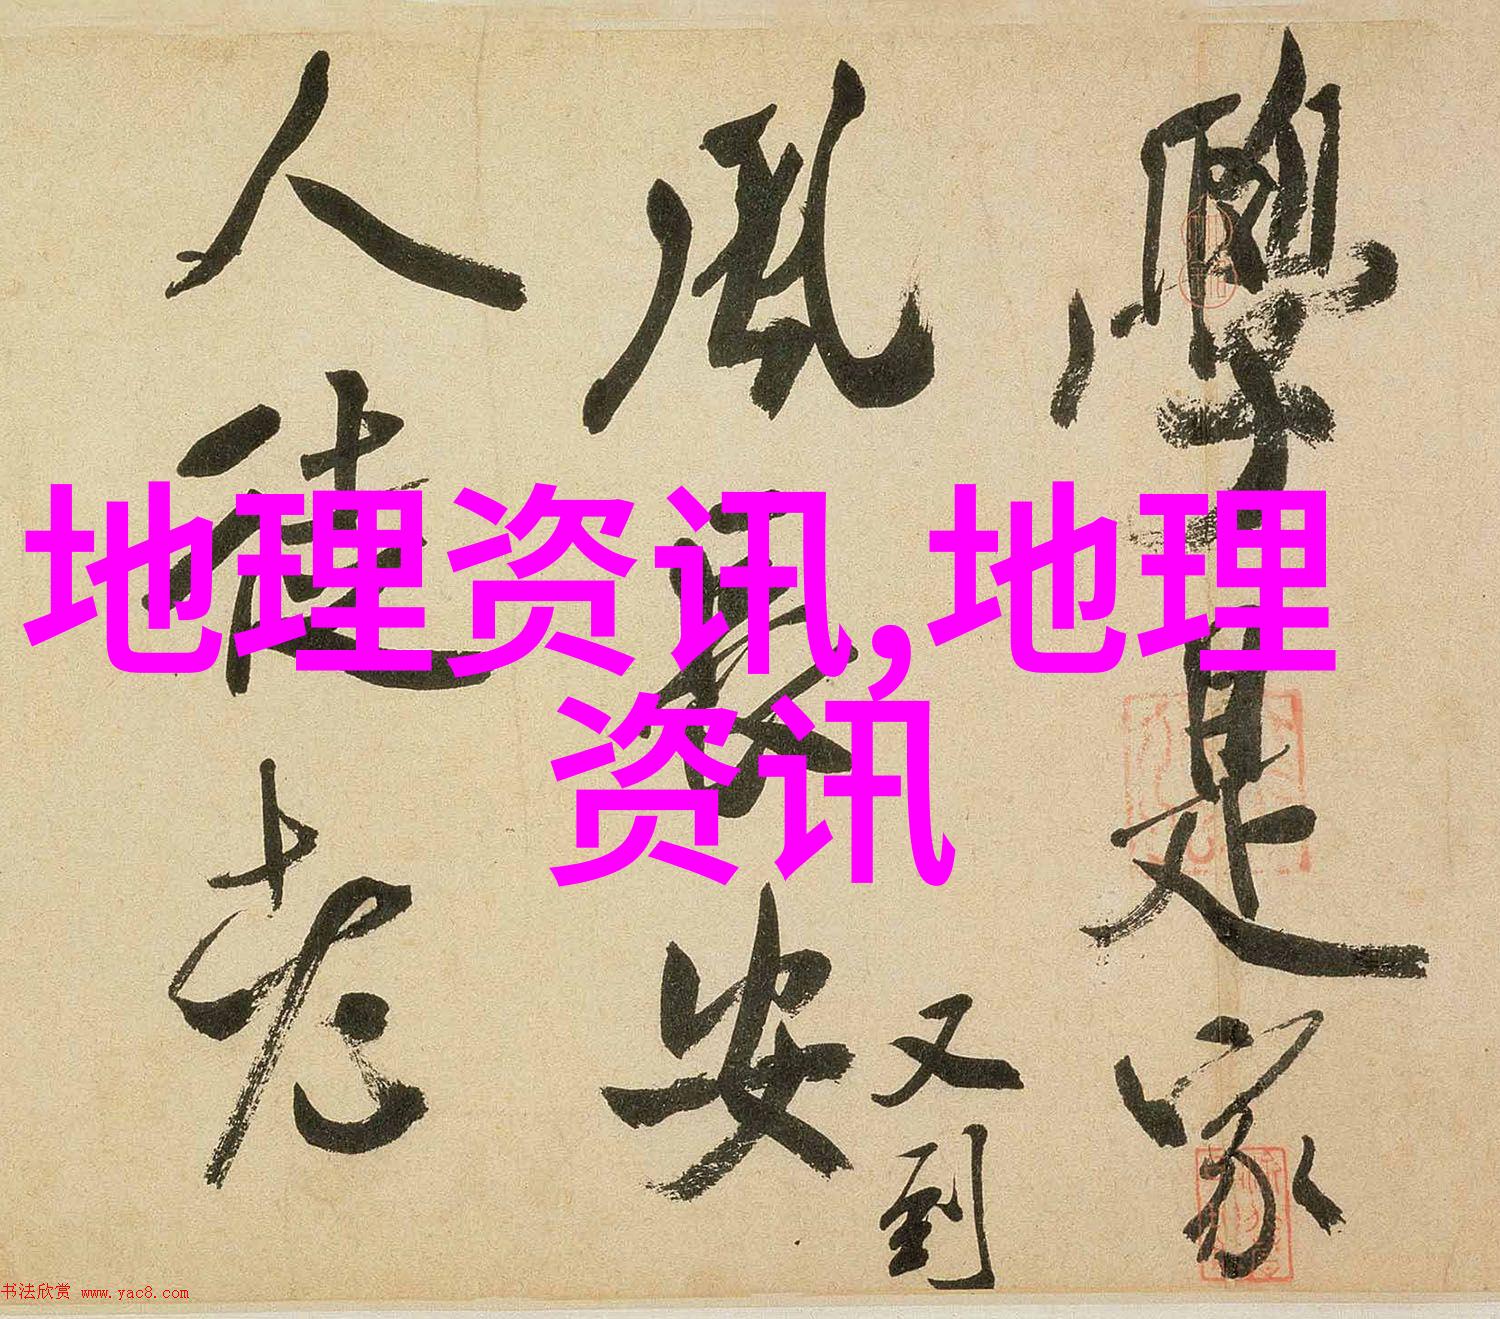 學是家
風長安
又到
人徒老
地理资讯,地理
资讯
书法欣赏 www.yac8.com